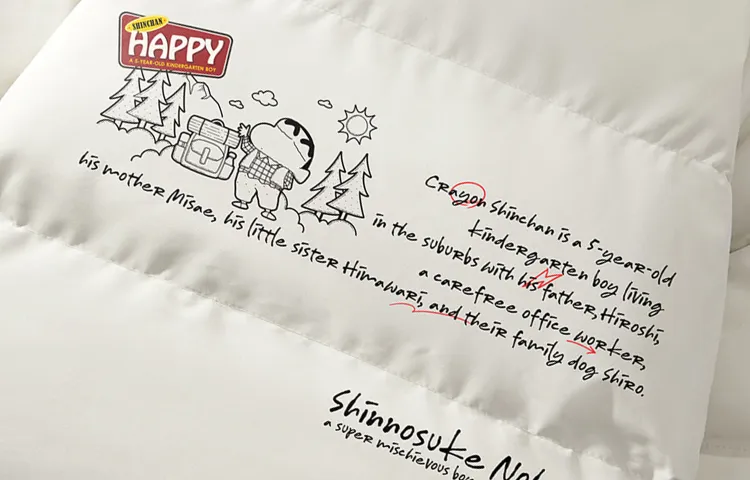 SHINCHAN
HAPPY
A 5-YEAR-OLD KINDERGARTEN BOY
Crayon Shinchan is a 5-year-old
kindergarten boy living
in the suburbs with his father, Hiroshi,
a carefree office worker,
his mother Misae, his little sister Himawari, and their family dog Shiro.
Shinnosuke
a super mischievous